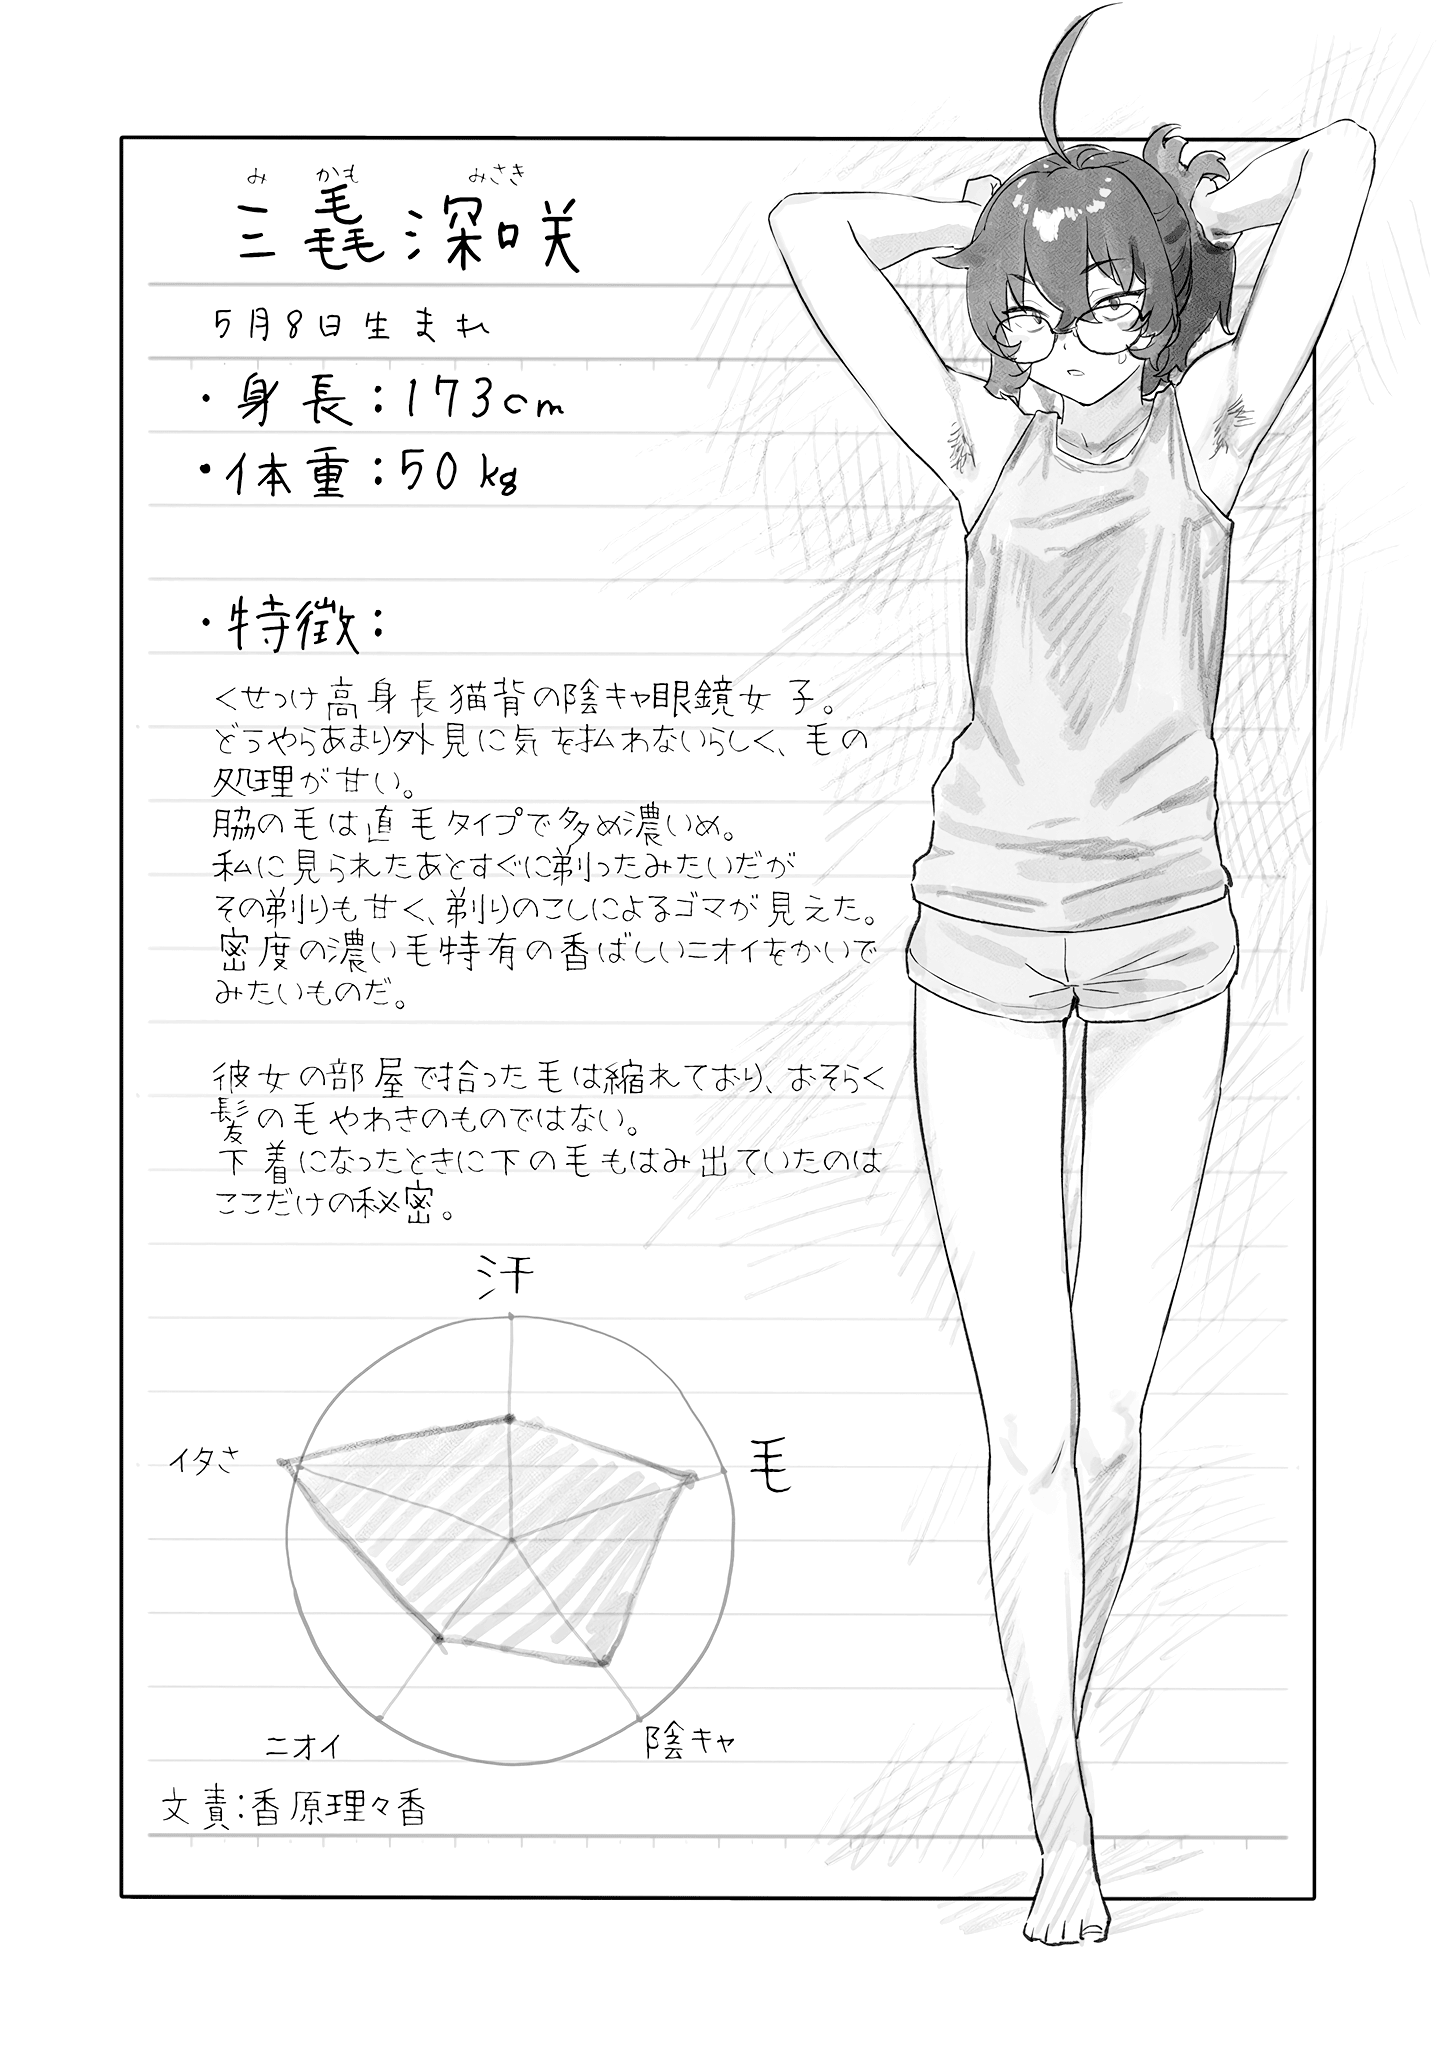 み かも みさき
三毳 深咲
5月8日生まれ
・身長：173cm
・体重：50kg
・特徴：
くせっけ高身長猫背の陰キャ眼鏡女子。
どうやらあまり外見に気を払わないらしく、毛の
処理が甘い。
脇の毛は直毛タイプで多め濃いめ。
私に見られたあとすぐに剃ったみたいだが
その剃りも甘く、剃りのこしによるゴマが見えた。
密度の濃い毛特有の香ばしいニオイをかいで
みたいものだ。
彼女の部屋で拾った毛は縮れており、おそらく
髪の毛やわきのものではない。
下着になったときに下の毛もはみ出ていたのは
ここだけの秘密。
汗
イタさ
毛
ニオイ
陰キャ
文責：香原理々香